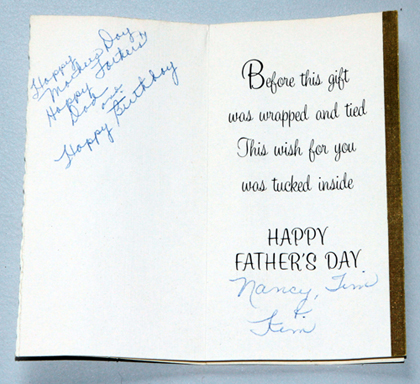 Happy
Mother's Day
Happy Father's
Day
and
Happy Birthday
Before this gift
was wrapped and tied
This wish for you
was tucked inside
HAPPY
FATHER'S DAY
Nancy, Tim
+
Kim